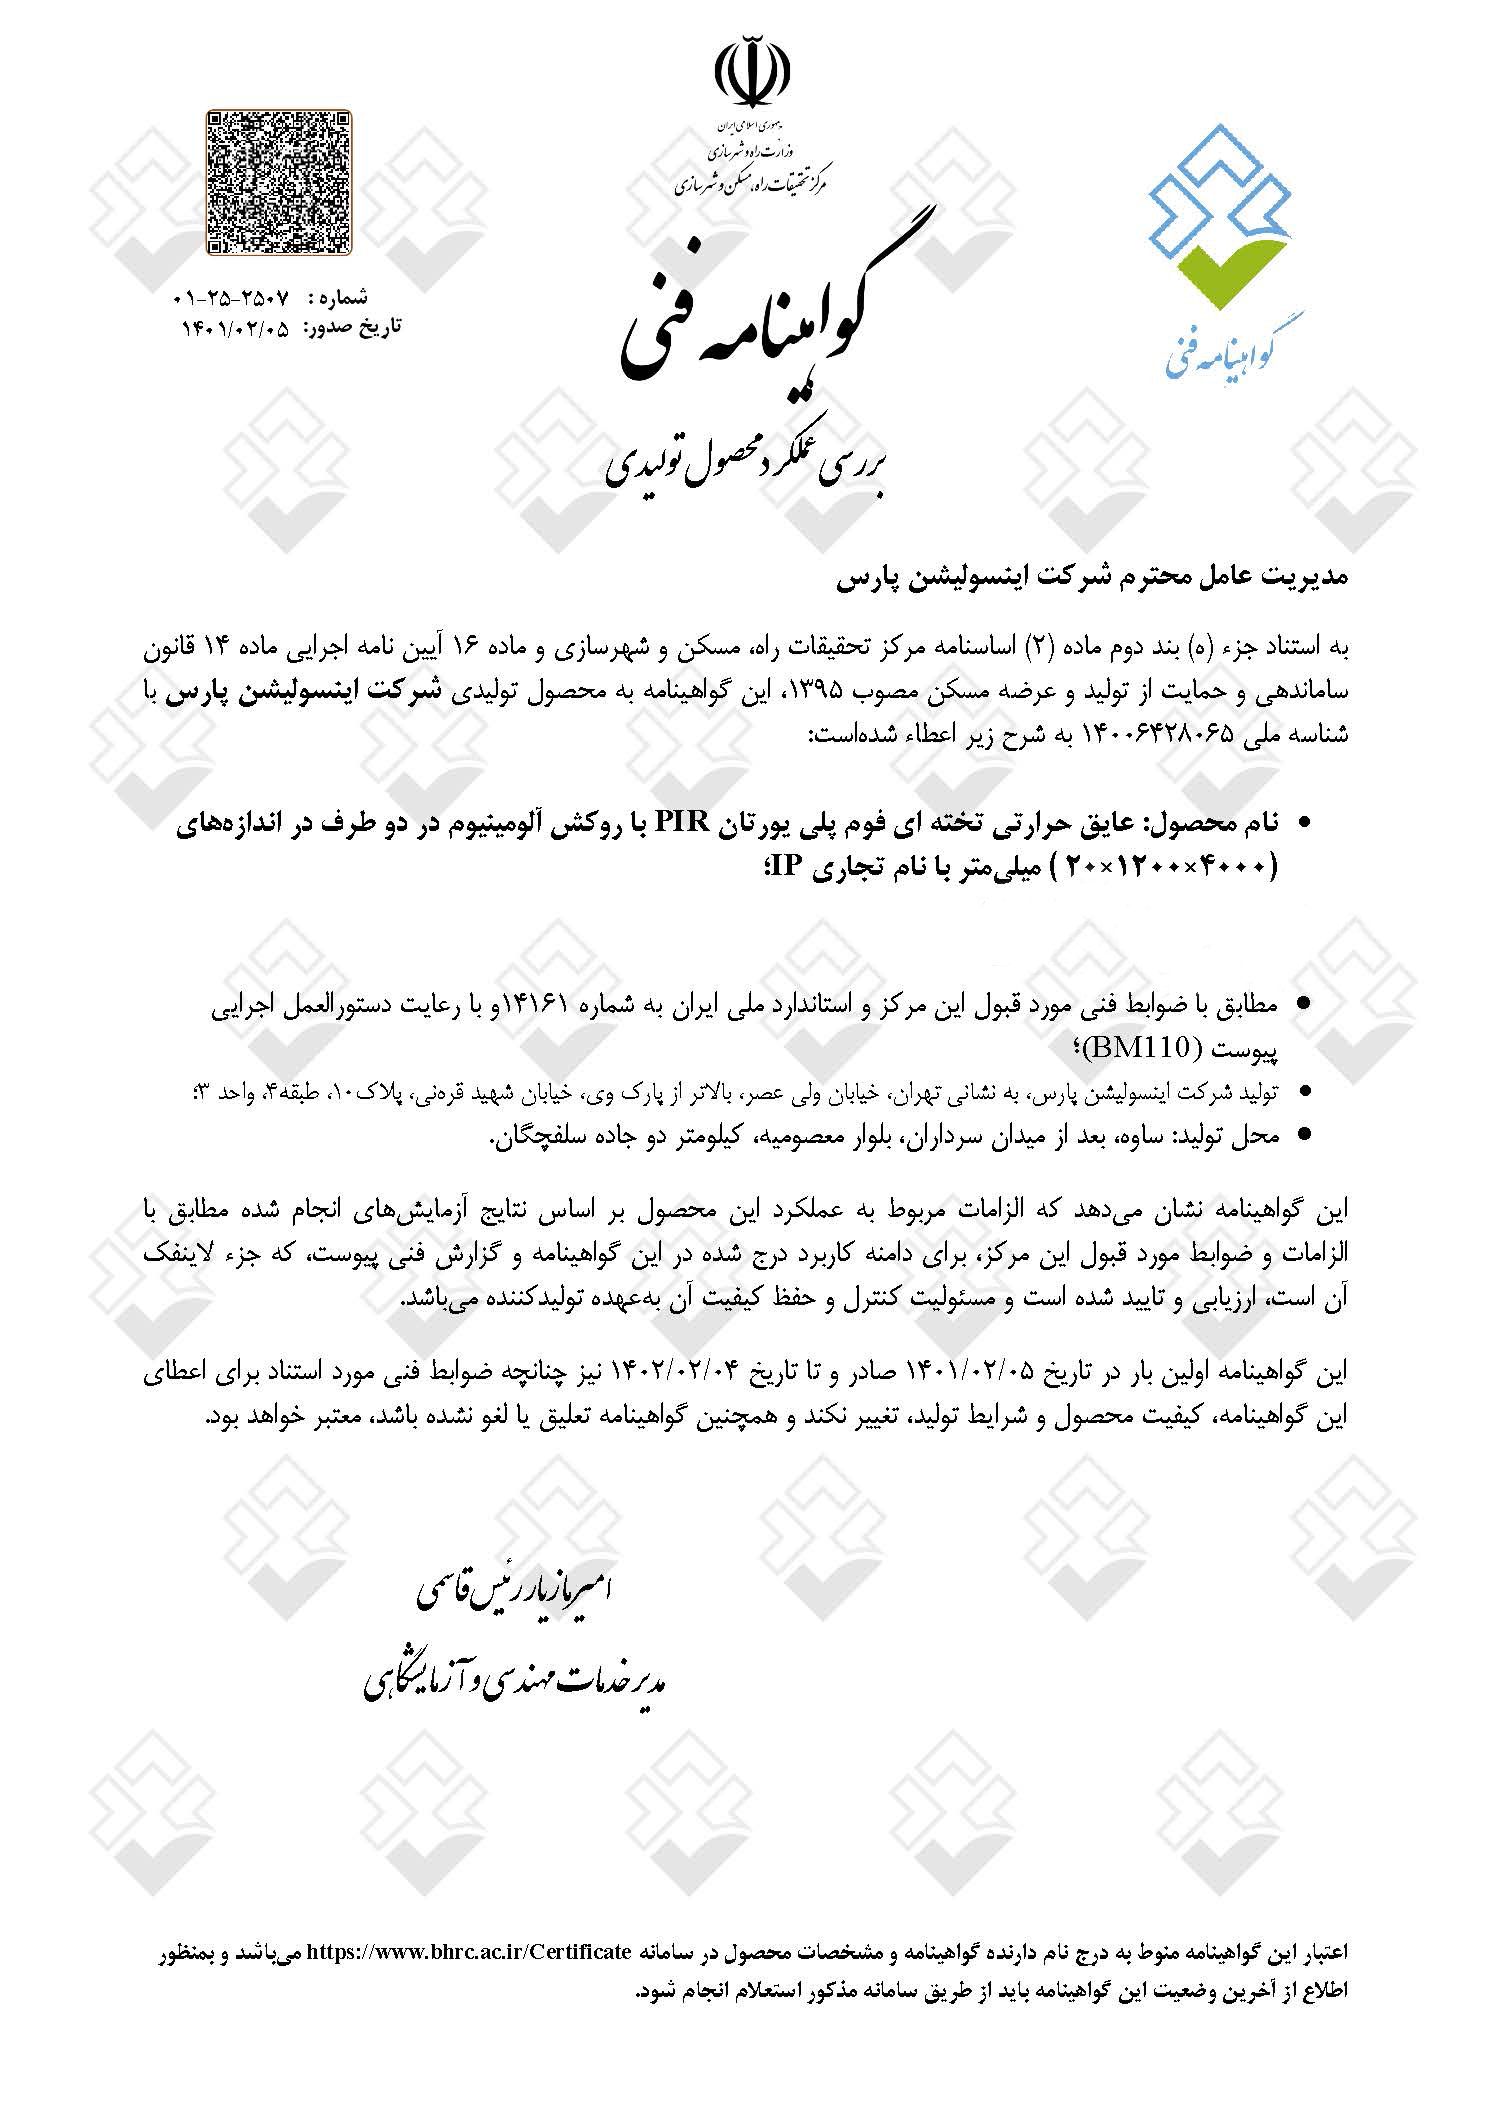 جمهوری اسلامی ایران
وزارت راه و شهرسازی
مرکز تحقیقات راه، مسکن و شهرسازی
شماره : ۲۵۰۷-۲۵-۰۱
تاریخ صدور: ۱۴۰۱/۰۲/۰۵
گواهینامه فنی
گواهینامه فنی
بررسی عملکرد محصول تولیدی
مدیریت عامل محترم شرکت اینسولیشن پارس
به استناد جزء (ه) بند دوم ماده (۲) اساسنامه مرکز تحقیقات راه، مسکن و شهرسازی و ماده ۱۶ آیین نامه اجرایی ماده ۱۴ قانون
ساماندهی و حمایت از تولید و عرضه مسکن مصوب ۱۳۹۵، این گواهینامه به محصول تولیدی شرکت اینسولیشن پارس با
شناسه ملی ۱۴۰۰۶۴۲۸۰۶۵ به شرح زیر اعطاء شده‌است:
• نام محصول: عایق حرارتی تخته ای فوم پلی یورتان PIR با روکش آلومینیوم در دو طرف در اندازه‌های
(۴۰۰۰×۱۲۰۰×۲۰ ) میلی‌متر با نام تجاری IP؛
• مطابق با ضوابط فنی مورد قبول این مرکز و استاندارد ملی ایران به شماره ۱۴۱۶۱و با رعایت دستورالعمل اجرایی
پیوست (BM110)؛
• تولید شرکت اینسولیشن پارس، به نشانی تهران، خیابان ولی عصر، بالاتر از پارک وی، خیابان شهید قره‌نی، پلاک۱۰، طبقه۴، واحد ۳؛
• محل تولید: ساوه، بعد از میدان سرداران، بلوار معصومیه، کیلومتر دو جاده سلفچگان.
این گواهینامه نشان می‌دهد که الزامات مربوط به عملکرد این محصول بر اساس نتایج آزمایش‌های انجام شده مطابق با
الزامات و ضوابط مورد قبول این مرکز، برای دامنه کاربرد درج شده در این گواهینامه و گزارش فنی پیوست، که جزء لاینفک
آن است، ارزیابی و تایید شده است و مسئولیت کنترل و حفظ کیفیت آن به‌عهده تولیدکننده می‌باشد.
این گواهینامه اولین بار در تاریخ ۱۴۰۱/۰۲/۰۵ صادر و تا تاریخ ۱۴۰۲/۰۲/۰۴ نیز چنانچه ضوابط فنی مورد استناد برای اعطای
این گواهینامه، کیفیت محصول و شرایط تولید، تغییر نکند و همچنین گواهینامه تعلیق یا لغو نشده باشد، معتبر خواهد بود.
امیرمازیار رئیس قاسمی
مدیر خدمات مهندسی و آزمایشگاهی
اعتبار این گواهینامه منوط به درج نام دارنده گواهینامه و مشخصات محصول در سامانه https://www.bhrc.ac.ir/Certificate می‌باشد و بمنظور
اطلاع از آخرین وضعیت این گواهینامه باید از طریق سامانه مذکور استعلام انجام شود.